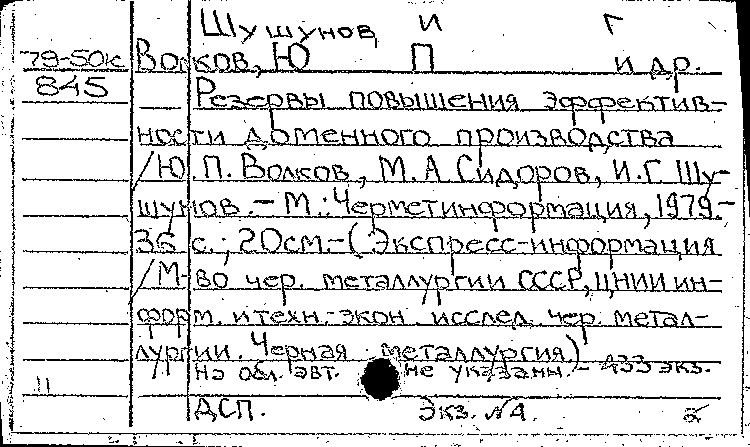 Шушунов, И Г
79-50к Волков, Ю П и др.
845 — Резервы повышения эффектив-
ности доменного производства
/Ю.П. Волков, М.А. Сидоров, И.Г. Шу-
шунов. – М.: Черметинформация, 1979.–
36 с.; 20см.–(Экспресс-информация
/М-во чер. металлургии СССР, ЦНИИ ин-
форм. и техн.-экон. исслед. чер. метал-
лургии. Черная металлургия)
На обл. авт. не указаны. – 433 экз.
ДСП. Экз. №4.